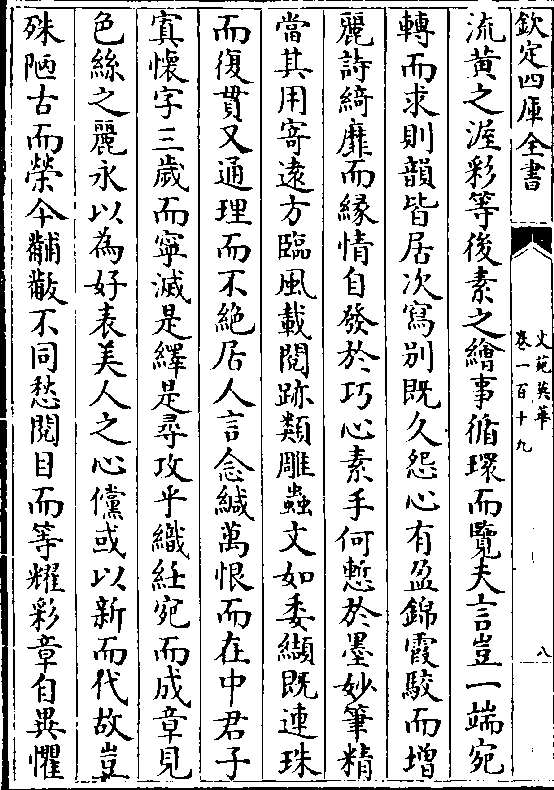 欽定四庫全書
文苑英華
卷一百十九
八
流黄之渥彩等後素之繪事循環而覽夫言豈一端宛
轉而求則韻皆居次寫别既久怨心有盈錦霞駮而增
麗詩綺靡而緣情自發於巧心素手何慙於墨妙筆精
當其用寄遠方臨風載閲跡類雕蟲文如委纈既連珠
而復貫又通理而不絶居人言念緘萬恨而在中君子
寘懷字三歲而寧滅是繹是尋攻乎織紝宛而成章見
色絲之麗永以為好表美人之心儻或以新而代故豈
殊陋古而榮今黼黻不同愁閲目而等耀彩章自異懼